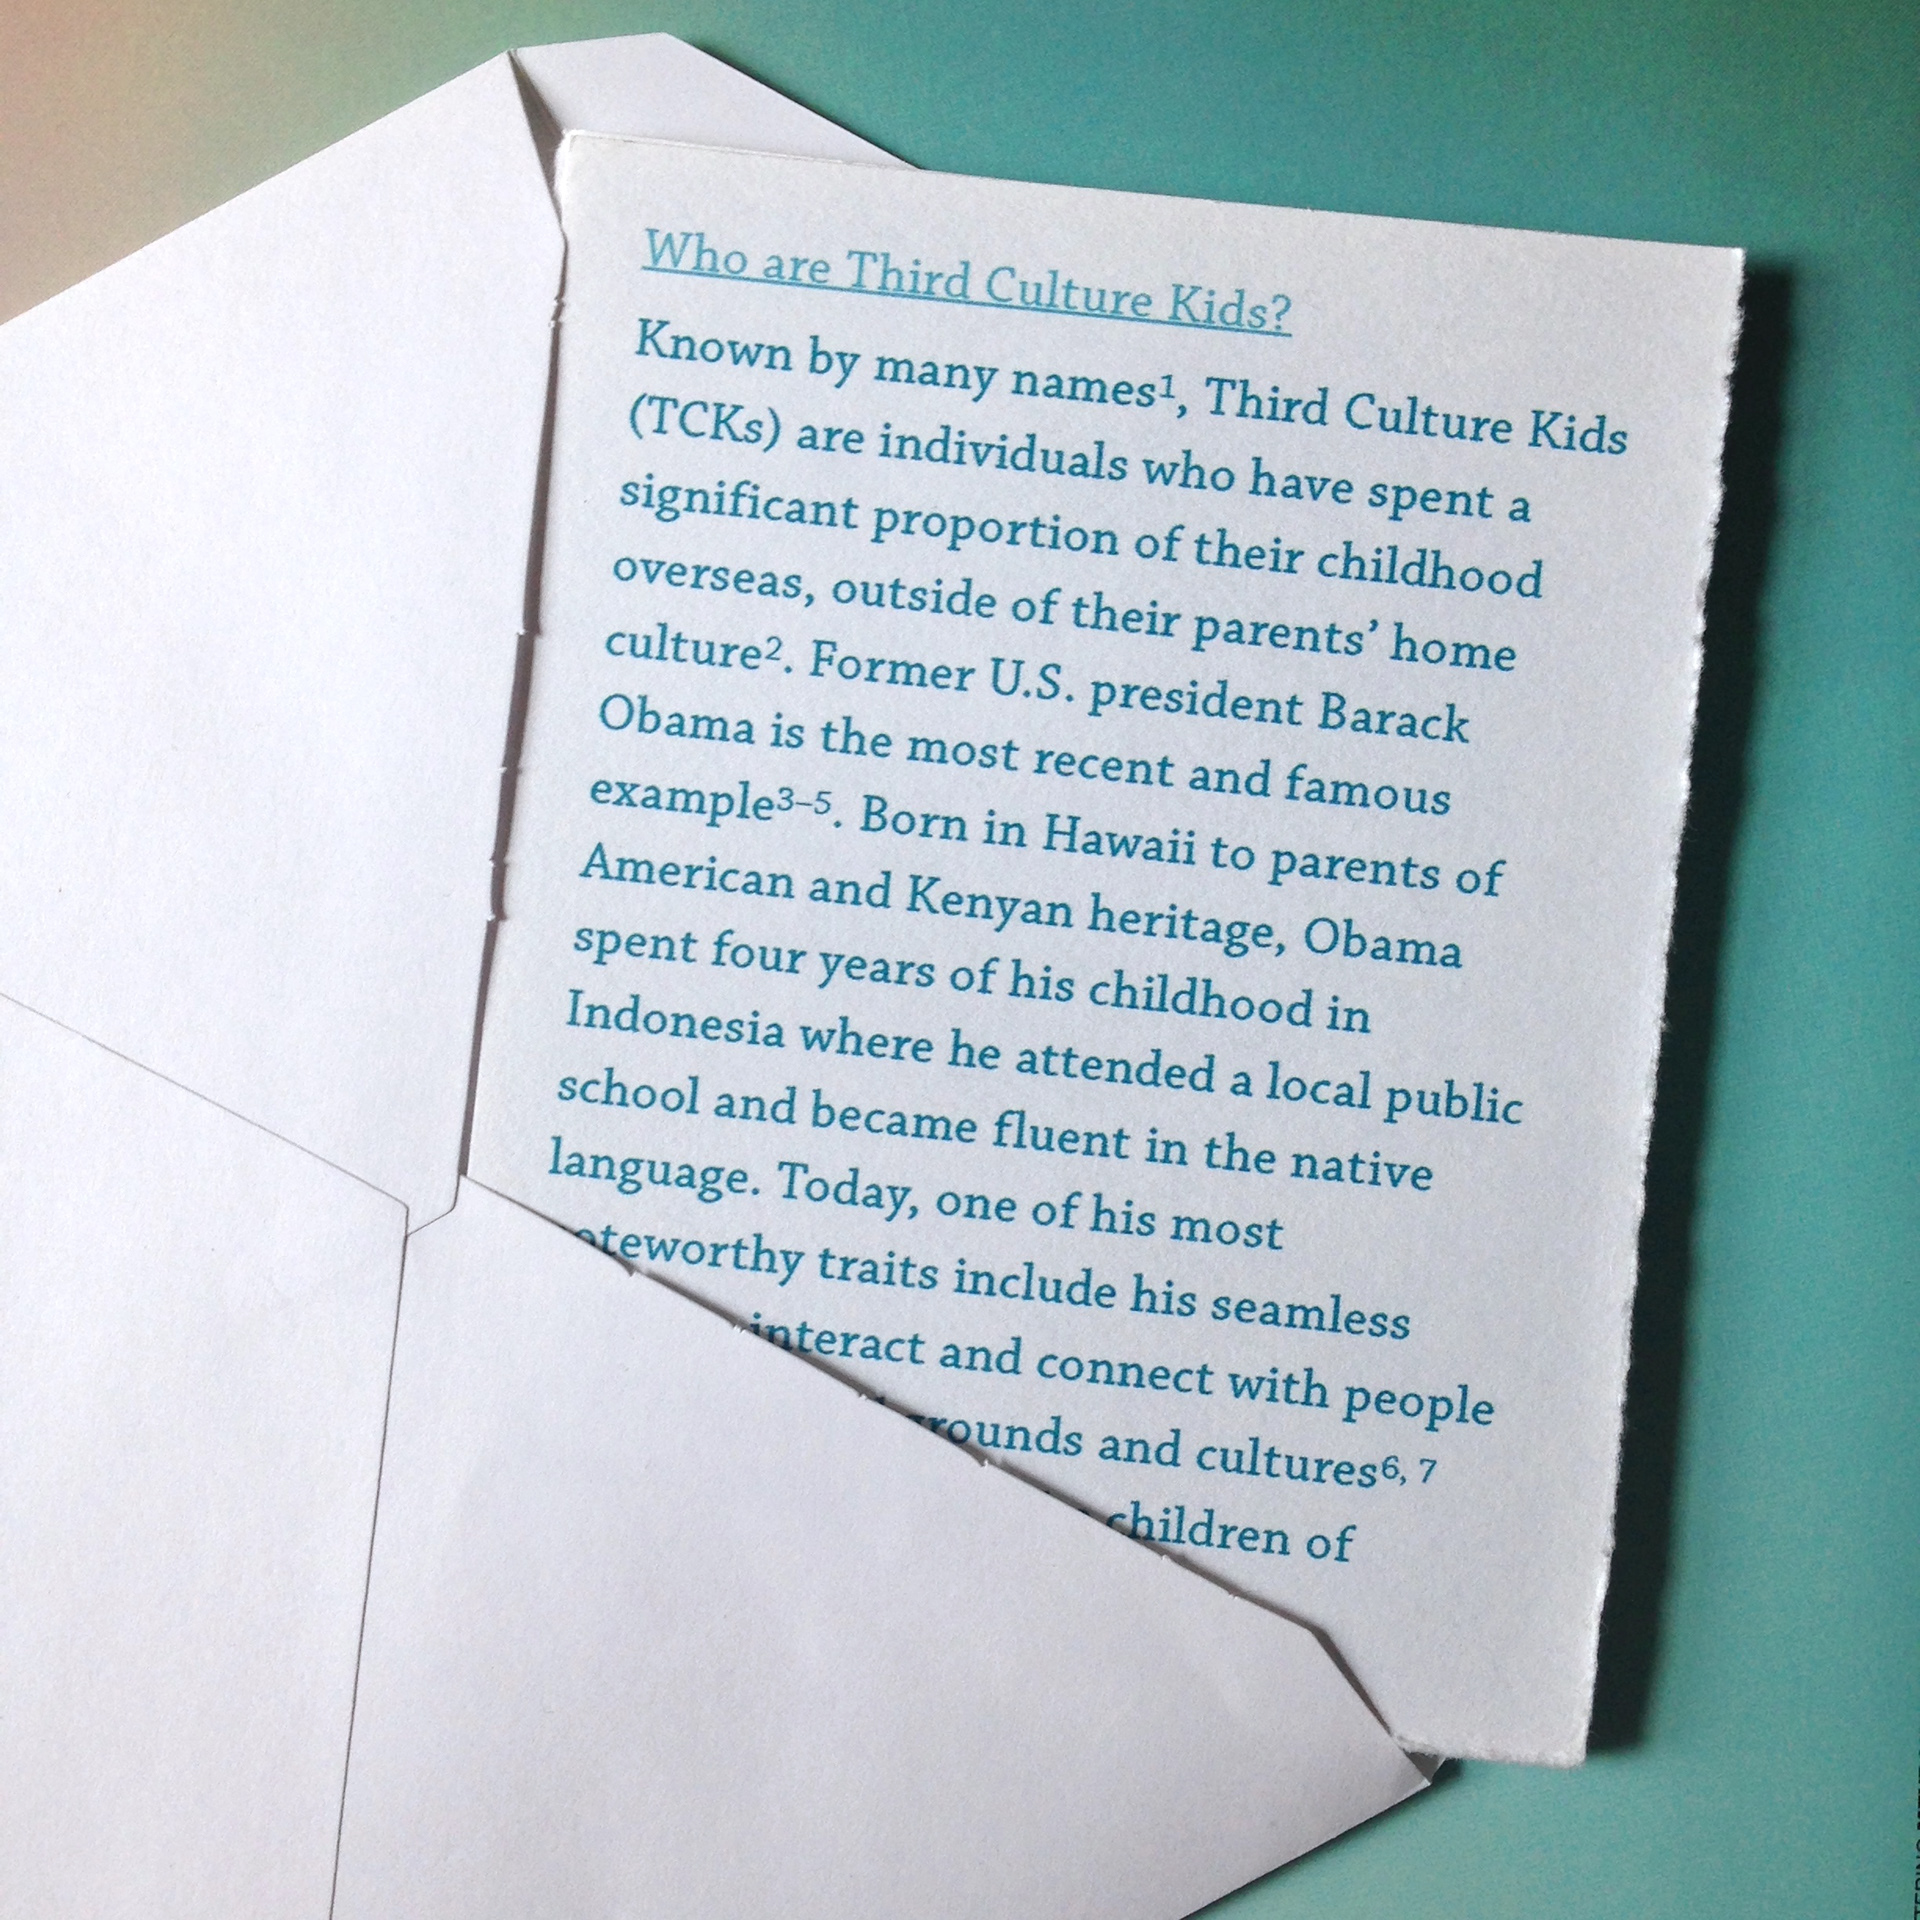 Who are Third Culture Kids?
Known by many names¹, Third Culture Kids
(TCKs) are individuals who have spent a
significant proportion of their childhood
overseas, outside of their parents’ home
culture². Former U.S. president Barack
Obama is the most recent and famous
example³⁻⁵. Born in Hawaii to parents of
American and Kenyan heritage, Obama
spent four years of his childhood in
Indonesia where he attended a local public
school and became fluent in the native
language. Today, one of his most
oteworthy traits include his seamless
interact and connect with people
rounds and cultures⁶, ⁷
children of